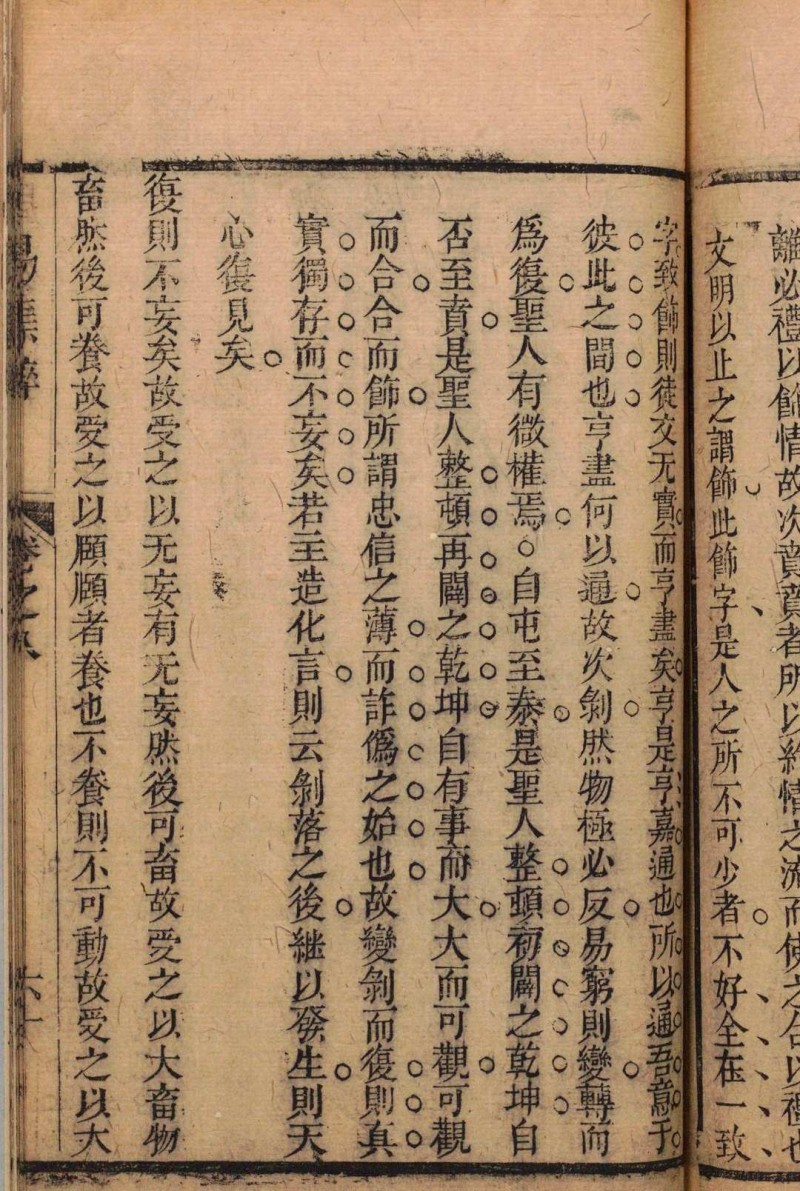 離必禮以飾情故次賁賁者所以約情之流而使之合以禮也
文明以止之謂飾此飾字是人之所不可少者不好全在一致
字致飾則徒文无實而亨盡矣亨是亨嘉通也所以通吾意于
彼此之間也亨盡何以通故次剝然物極必反易窮則變轉而
爲復聖人有微權焉○自屯至泰是聖人整頓初闢之乾坤自
否至賁是聖人整頓再闢之乾坤自有事而大大而可觀可觀
而合合而飾所謂忠信之薄而詐僞之始也故變剝而復則真
實獨存而不妄矣若主造化言則云剝落之後繼以發生則天
心復見矣
復則不妄矣故受之以无妄有无妄然後可畜故受之以大畜物
畜然後可養故受之以頤頤者養也不養則不可動故受之以大
易集粹
卷之八
六十